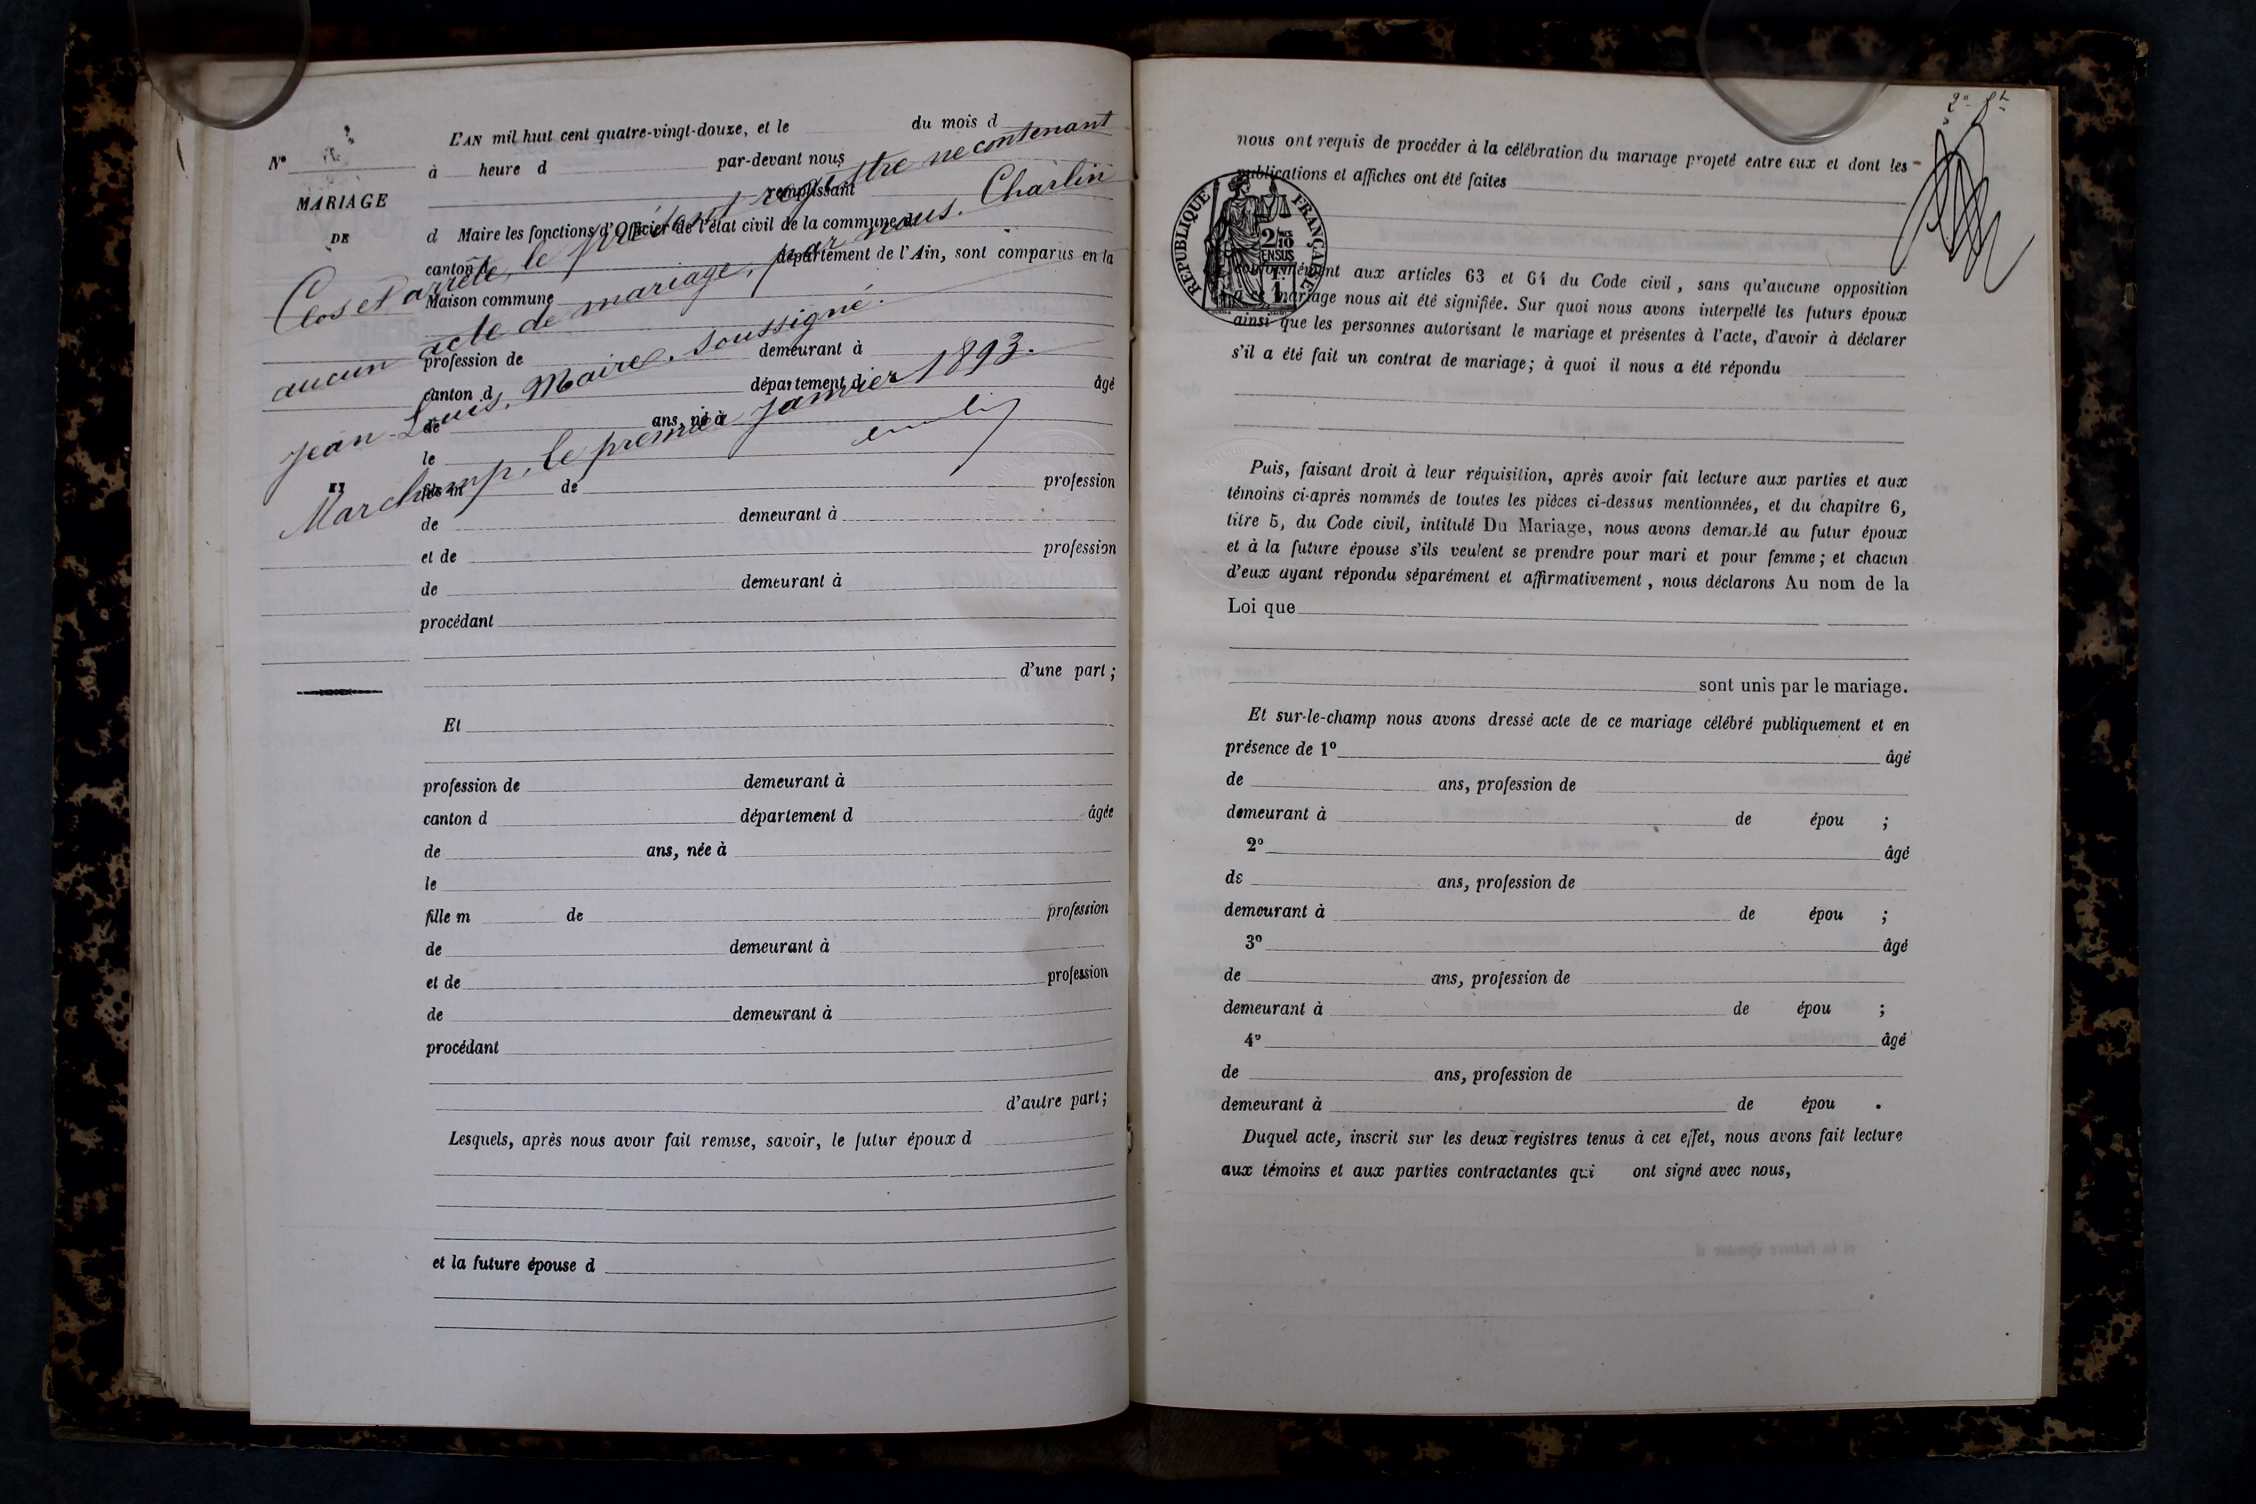 L'AN mil huit cent quatre-vingt-douze, et le du mois d
N° à heure d par-devant nous
remplissant
MARIAGE
DE
d Maire les fonctions d'Officier de l'état civil de la commune d
canton d département de l'Ain, sont comparus en la
Maison commune
profession de demeurant à
canton d département d âgé
de ans, né à
le
ET
fils m de profession
de demeurant à
et de profession
de demeurant à
procédant
d'une part ;
Clos et arrêté, le présent registre ne contenant
aucun acte de mariage, par nous. Charlin
Jean-Louis, Maire, soussigné.
Marchamp, le premier janvier 1893.
Et
profession de demeurant à
canton d département d âgée
de ans, née à
le
fille m de profession
de demeurant à
et de profession
de demeurant à
procédant
d'autre part ;
Lesquels, après nous avoir fait remise, savoir, le futur époux d
et la future épouse d
nous ont requis de procéder à la célébration du mariage projeté entre eux et dont les
publications et affiches ont été faites
RÉPUBLIQUE FRANÇAISE
2/10
EN SUS
conformément aux articles 63 et 64 du Code civil, sans qu'aucune opposition
à ce mariage nous ait été signifiée. Sur quoi nous avons interpellé les futurs époux
ainsi que les personnes autorisant le mariage et présentes à l'acte, d'avoir à déclarer
s'il a été fait un contrat de mariage; à quoi il nous a été répondu
Puis, faisant droit à leur réquisition, après avoir fait lecture aux parties et aux
témoins ci-après nommés de toutes les pièces ci-dessus mentionnées, et du chapitre 6,
titre 5, du Code civil, intitulé Du Mariage, nous avons demandé au futur époux
et à la future épouse s'ils veulent se prendre pour mari et pour femme ; et chacun
d'eux ayant répondu séparément et affirmativement, nous déclarons Au nom de la
Loi que
sont unis par le mariage.
Et sur-le-champ nous avons dressé acte de ce mariage célébré publiquement et en
présence de 1° âgé
de ans, profession de
demeurant à de épou ;
2° âgé
de ans, profession de
demeurant à de épou ;
3° âgé
de ans, profession de
demeurant à de épou ;
4° âgé
de ans, profession de
demeurant à de épou .
Duquel acte, inscrit sur les deux registres tenus à cet effet, nous avons fait lecture
aux témoins et aux parties contractantes qui ont signé avec nous,